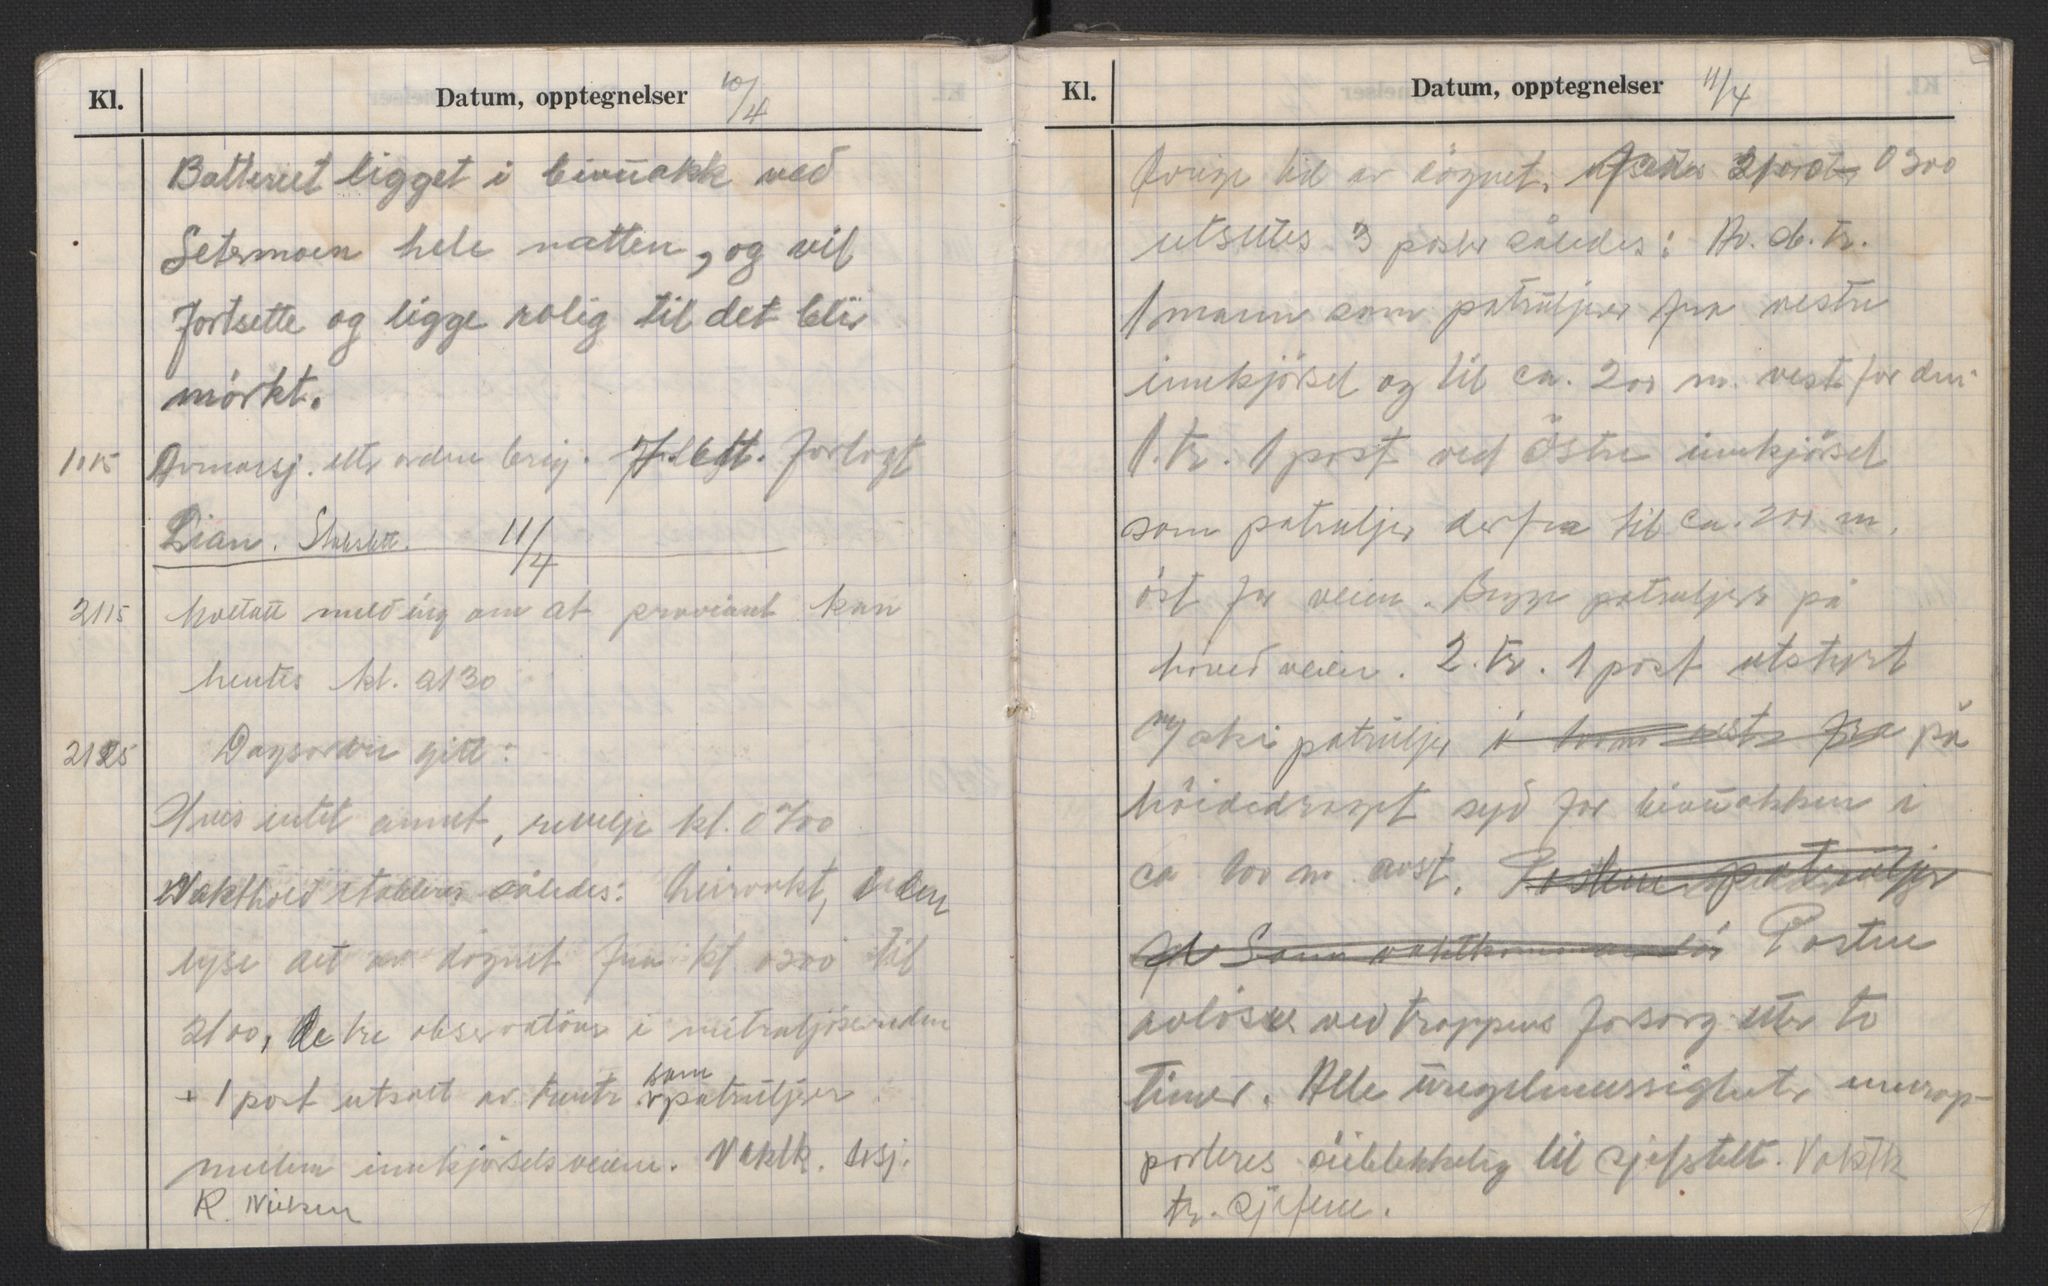 Kl. Datum, opptegnelser 10/4
Batteriet ligget i bivuakk ved
Setermoen hele natten, og vil
fortsette og ligge rolig til det blir
mörkt.
1015 Avmarsj. etter ordre brig. forlagt
Lian. 11/4
2115 Mottatt melding om at proviant kan
hentes kl. 2130
2125 Dagsordre gitt:
Hvis intet annet, revelje kl. 0700
Vakthold etableres således: Luftvakt, i den
lyse del av dögnet fra kl 0300 til
2100, de tre observatörer i mitraljöserreden
+ 1 post utsatt av som patruljerer
mellem innkjörselsveiene. Vaktk. srsj.
R. Nielsen
Kl. Datum, opptegnelser 11/4
övrige tid av dögnet. 0300
utsettes 3 poster således: Av. d. tr.
1 mann som patruljerer fra vestre
innkjörsel og til ca. 200 m. vest for den
1. tr. 1 post ved östre innkjörsel
som patruljer derfra til ca. 200 m.
öst for veien. Begge patruljerer på
hovedveien. 2. tr. 1 post utstyrt
m/ski patruljer på
höidedraget syd for bivuakken i
ca 100 m avst. Postene patruljer
Som vaktkommandör Postene
avlöses ved troppens forsorg etter to
timer. Alle uregelmessigheter innrap-
porteres öieblikkelig til sjefstelt. Vaktk
tr. sjefene.